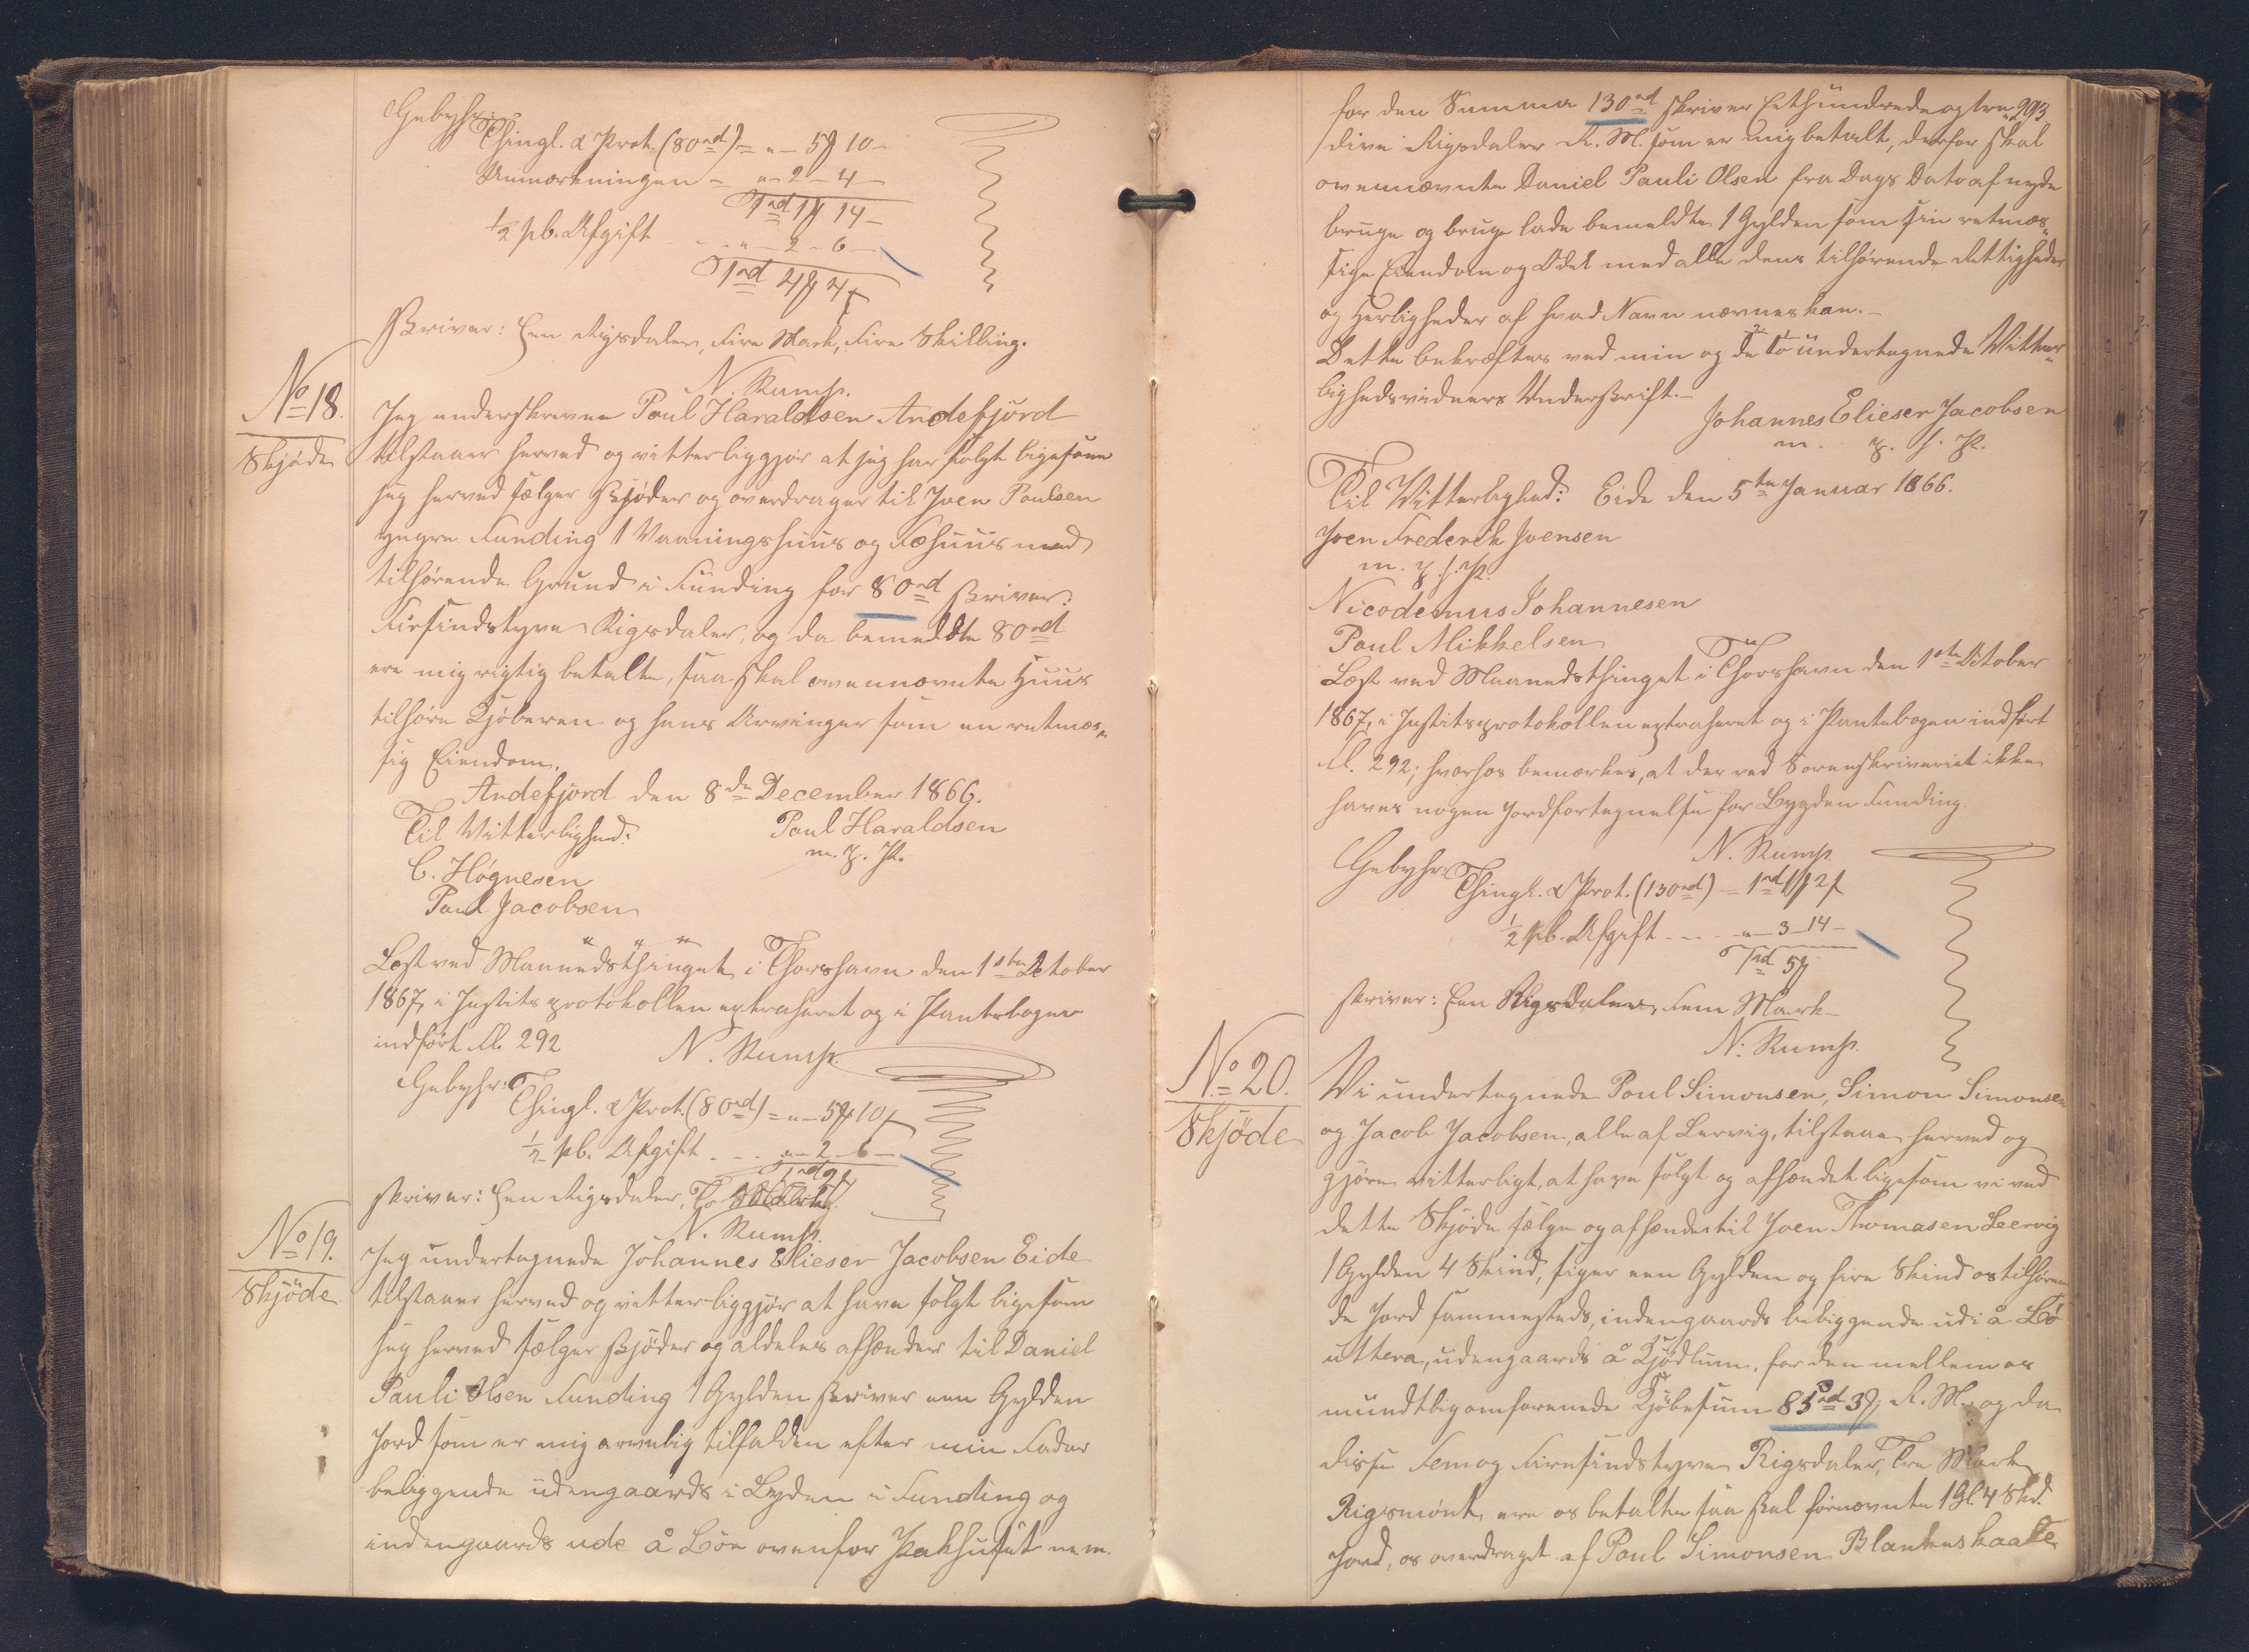 Gebyhr:
Thingl. & Prot. (80rd) = „ – 5 ₰ 10 –
Anmærkningen = „ – 2 – 4 –
1rd 1 ₰ 14 –
½ pb. Afgift - - „ – 2 – 6 –
1rd 4 ₰ 4
skriver: Een Rigsdaler, Fire Mark, Fire Skilling.
N. Rump.
No 18.
Skjøde
Jeg underskrevne Poul Haraldsen Andefjord
tilstaaer herved og vitterliggjør at jeg har solgt ligesom
jeg herved sælger skjøder og overdrager til Joen Poulsen
yngre Funding 1 Vaaningshuus og Fæhuus med
tilhørende Grund i Funding for 80rd skriver:
Firsindstyve Rigsdaler, og da bemeldte 80rd
ere mig rigtig betalte, saa skal ovennævnte Huus
tilhøre Kjøberen og hans Arvinger som en retmæs-
sig Eiendom.
Andefjord den 8de December 1866.
Til Vitterlighed: Poul Haraldsen
m. p. P.
C. Høgnesen
Poul Jacobsen
Læst ved Maanedsthinget i Thorshavn den 1ste October
1867, i Justitsprotokollen extraheret og i Pantebogen
indført Fl. 292 N. Rump.
Gebyhr:
Thingl. & Prot. (80rd) = „ – 5 ₰ 10
½ pb. Afgift - - - „ – 2 – 6 –
1rd 2 ₰
skriver: Een Rigsdaler, To Mark
N. Rump.
No 19.
Skjøde
Jeg undertegnede Johannes Elieser Jacobsen Eide
tilstaaer herved og vitterliggjør at have solgt ligesom
jeg herved sælger skjøder og aldeles afhænder til Daniel
Pauli Olsen Funding 1 Gylden skriver een Gylden
Jord som er mig arvelig tilfalden efter min Fader
beliggende udengaards i Lyden i Funding og
indengaards ude å Bøn ovenfor Pakhuset n. m.
293
for den Summa 130rd skriver Eethundrede og tre-
dive Rigsdaler R. M. som er mig betalt, derfor skal
ovennævnte Daniel Pauli Olsen fra Dags Dato af nyde
bruge og bruge lade bemeldte 1 Gylden som sin retmæs-
sige Eiendom og Odel med alle dens tilhørende Rettigheder
og Herligheder af hvad Navn nævnes kan. –
Dette bekræftes ved min og de to undertegnede Vitter-
lighedsvidners Underskrift. –
Johannes Elieser Jacobsen
m. p. f. P.
Til Vitterlighed: Eide den 5te Januar 1866.
Joen Frederik Joensen
m. p. f. P.
Nicodemus Johannesen
Poul Mikkelsen
Læst ved Maanedsthinget i Thorshavn den 1ste October
1867, i Justitsprotokollen extraheret og i Pantebogen indført
Fl. 292; hvorhos bemærkes, at der ved Sorenskriveriet ikke
haves nogen Jordfortegnelse for Bygden Funding.
N. Rump
Gebyhr:
Thingl. & Prot. (130rd) – 1rd 1 ₰ 2
½ pb. Afgift - - - „ – 3 – 14 –
1rd 5 ₰
skriver: Een Rigsdaler, Fem Mark –
N. Rump.
No 20.
Skjøde
Vi undertegnede Poul Simonsen, Simon Simonsen
og Jacob Jacobsen, alle af Lervig, tilstaae herved og
gjøre vitterligt, at have solgt og afhændet ligesom vi ved
dette Skjøde sælge og afhænde til Joen Thomasen Leervig
1 Gylden 4 Skind, siger een Gylden og fire Skind os tilhøren-
de Jord sammesteds, indengaards beliggende udi å Bö
uttera, udengaards å Kjødlum, for den mellem os
mundtlig omforenede Kjøbesum 85rd 3 ₰ R. M. og da
disse Fem og Firesindstyve Rigsdaler, Tre Mark
Rigsmønt, ere os betalte saa skal førnævnte 1 Gl. 4 Skd.
Jord, os overdraget af Poul Simonsen Blankeskaale